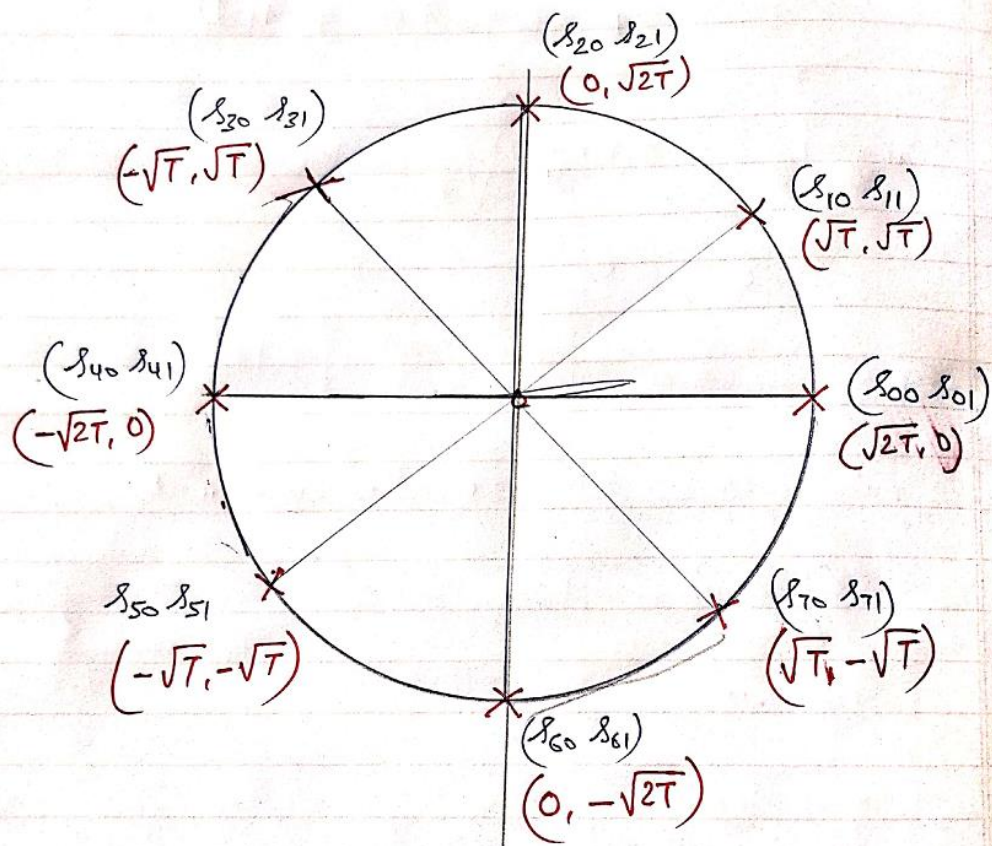 (s20 s21)
(0, √2T)
(s30 s31)
(-√T, √T)
(s10 s11)
(√T, √T)
(s40 s41)
(-√2T, 0)
(s00 s01)
(√2T, 0)
s50 s51
(-√T, -√T)
(s70 s71)
(√T, -√T)
(s60 s61)
(0, -√2T)